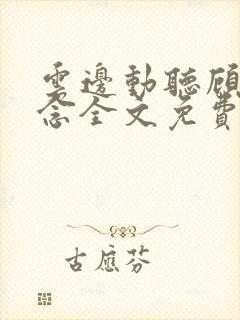 雲邊動聽顧
念全文免費
古應芬